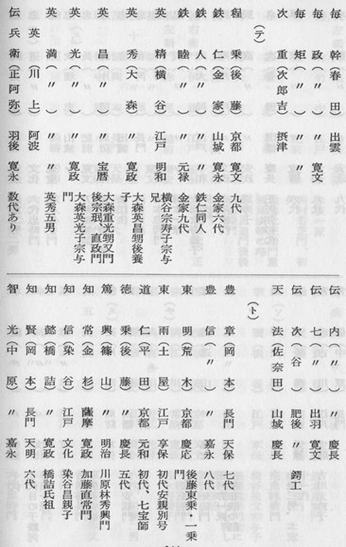 毎 幹(春 田) 出雲
毎 政(〃) 〃 寛文
毎 矩(〃) 〃
次 重(次郎吉) 摂津
(テ)
程 乗(後 藤) 京都 寛文 九代
鉄 仁(金 家) 山城 寛永 金家六代
鉄 人(〃) 〃 〃 鉄仁同人
鉄 睦(〃) 〃 元禄 金家九代
英 精(横 谷) 江戸 明和 横谷宗寿子宗与
兄
英 秀(大 森) 〃 寛政 大森英昌甥後養
子
英 昌(〃) 〃 宝暦 大森重光甥又門
後宗珉、直政門
英 光(〃) 〃 寛政 大森英光子宗与
門
英 満(〃) 〃 〃 英秀五男
英(川 上) 阿波
伝兵衛(正阿弥) 羽後 寛永 数代あり
伝 内(〃) 〃 慶長
伝 七(〃) 出羽 寛文
伝 次(谷) 肥後 〃 鐔工
天 法(佐奈田) 山城 慶長
(ト)
豊 章(岡 本) 長門 天保 七代
豊 信(〃) 〃 嘉永 八代
東 明(荒 木) 京都 慶応 後藤東乗・一乗
門
東 雨(土 屋) 江戸 享保 初代安親別号
道 仁(平 田) 京都 元和 初代、七宝師
徳 乗(後 藤) 〃 慶長 五代
篤 興(篠 山) 〃 明治 川原林秀興門
知 常(金 杉) 薩摩 寛政 加藤直常門
知 信(染 谷) 江戸 文化 染谷昌親子
知 懿(橋 詰) 〃 寛政 橋詰氏祖
知 賢(岡 本) 長門 天明 六代
智 光(中 原) 〃 嘉永